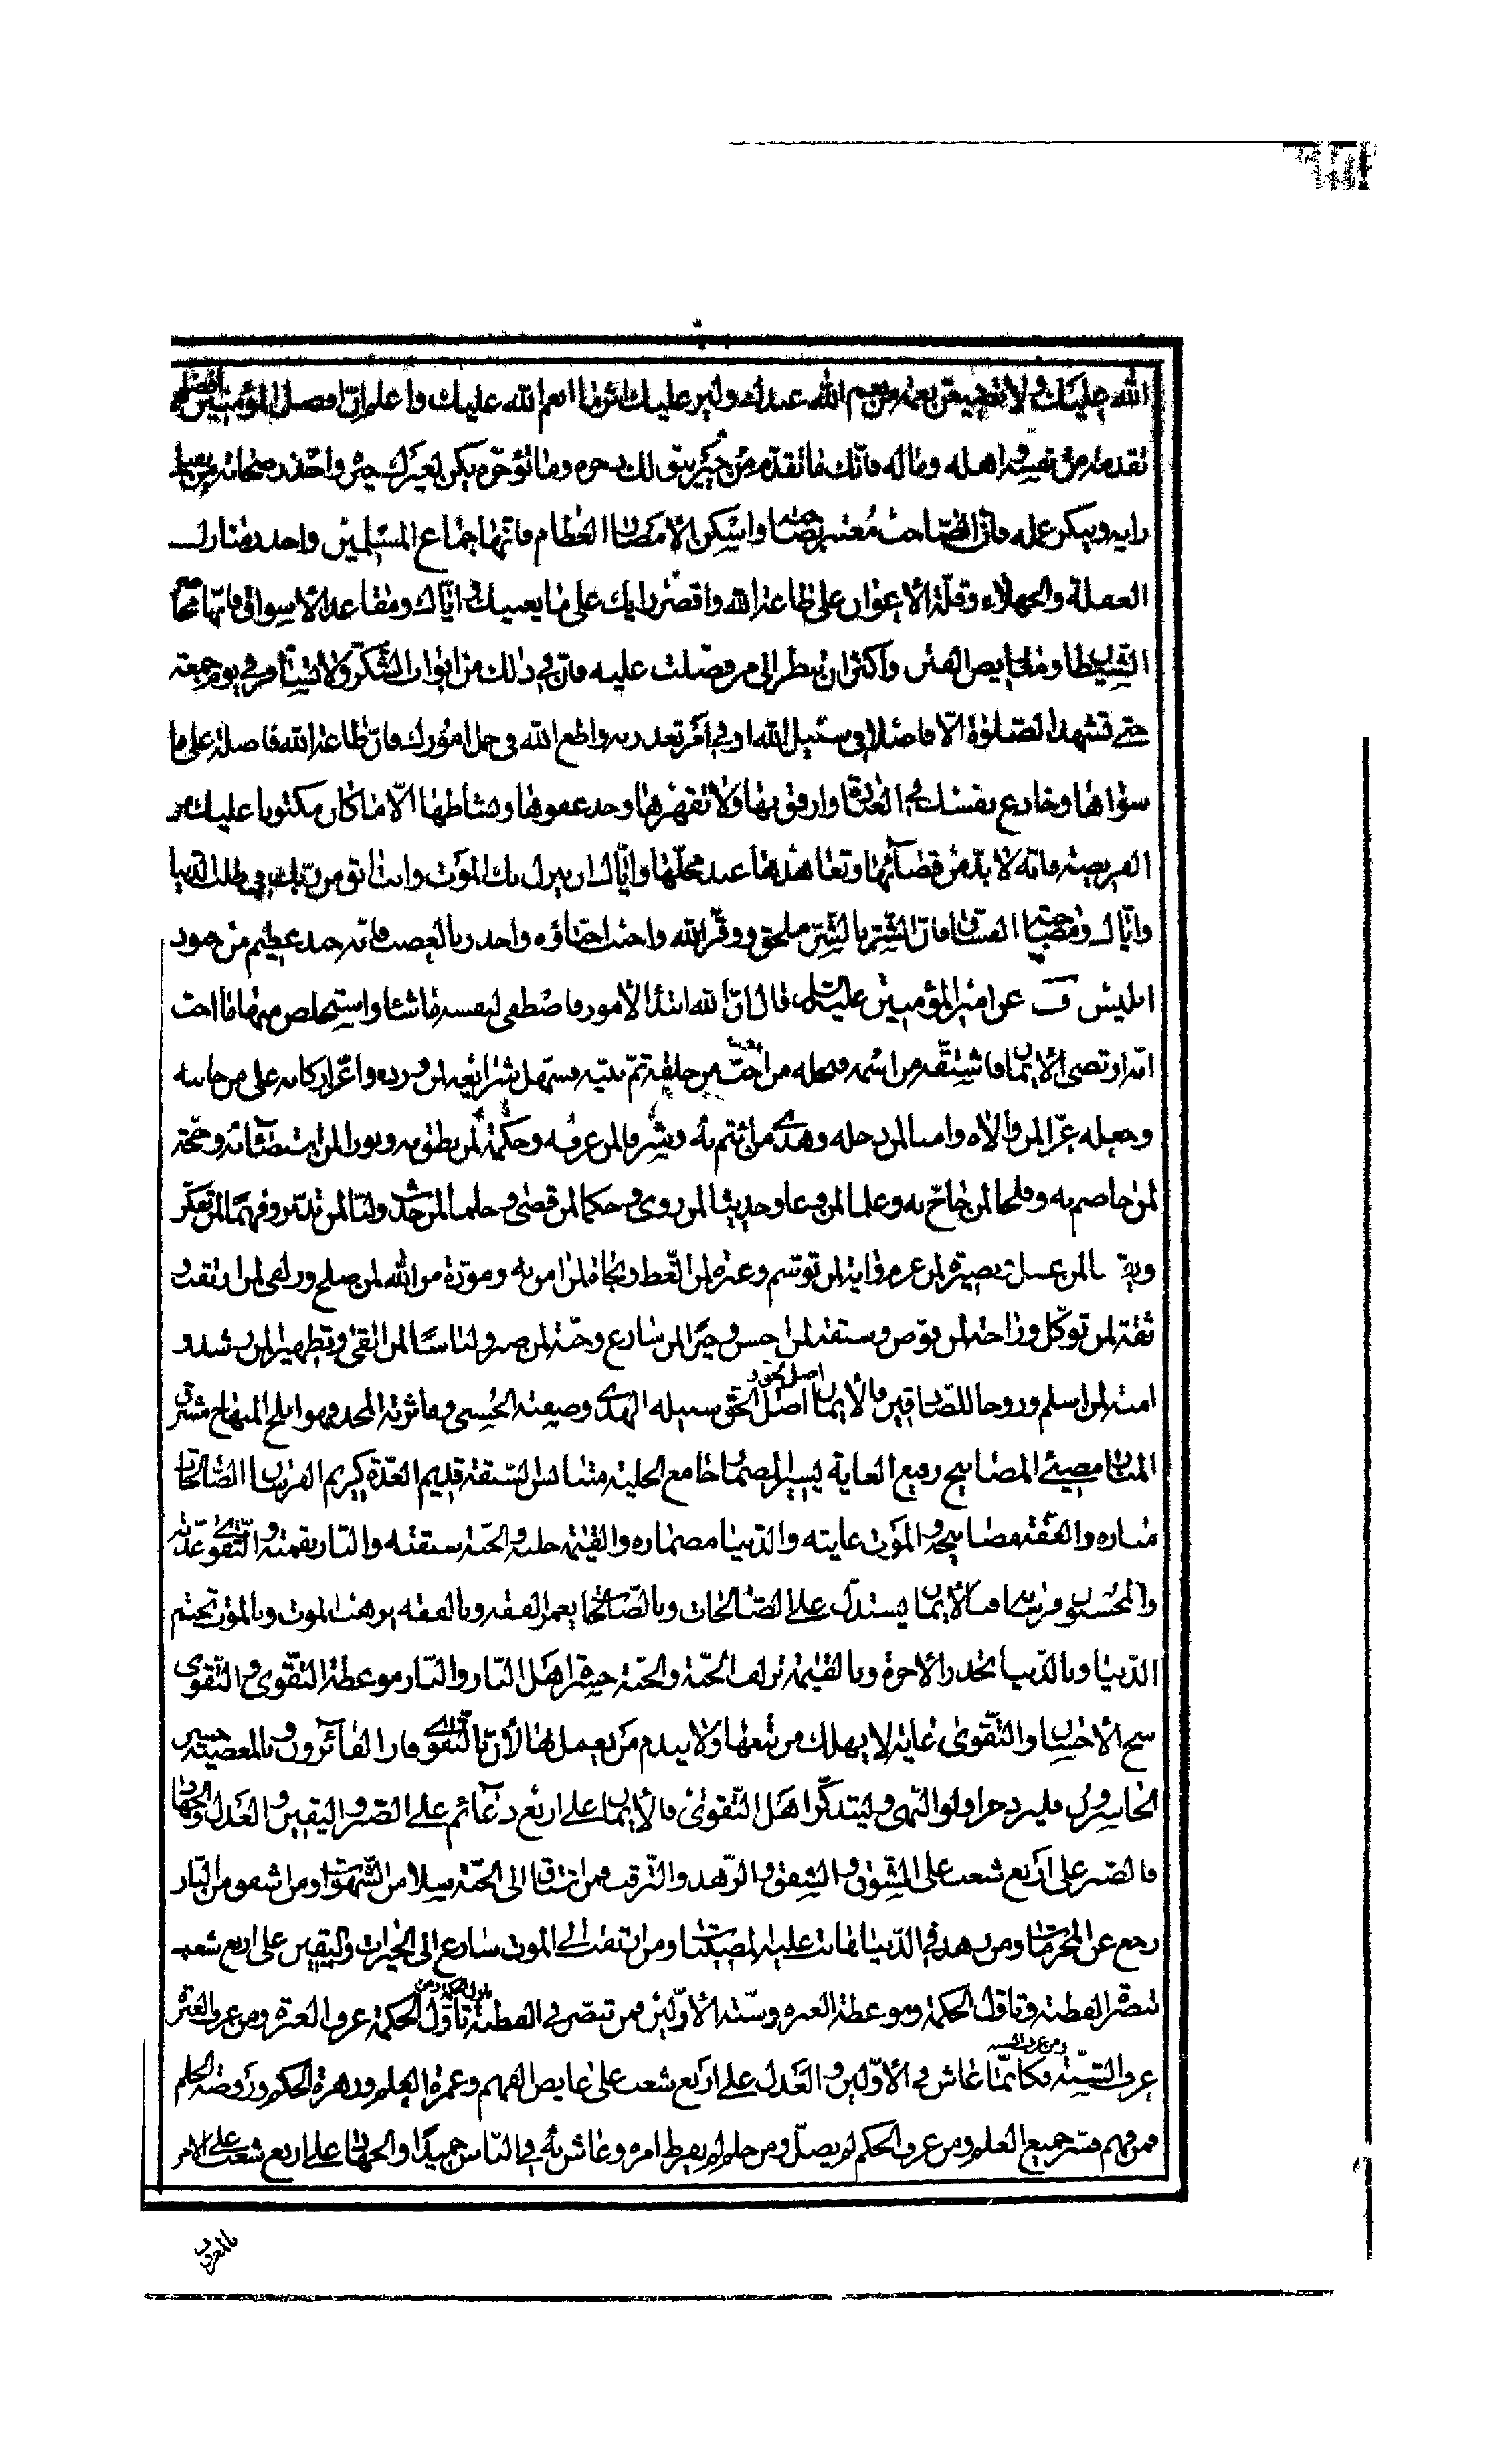 الله عليك ولا تضيعن نعمة من نعم الله عندك ولير عليك اثر ما انعم الله عليك واعلم ان افضل المؤمنين افضلهم
تقدمة من نفسه واهله وماله فانك ما تقدم من خير يبق لك ذخره وما تؤخره يكن لغيرك خيره واحذر صحابة من يفيل
رايه وينكر عمله فان الصاحب معتبر بصاحبه واسكن الامصار العظام فانها جماع المسلمين واحذر منازل
الغفلة والجفاء وقلة الاعوان على طاعة الله واقصر رايك على ما يعنيك واياك ومقاعد الاسواق فانها محاضر
الشيطان ومعاريض الفتن واكثر ان تنظر الى من فضلت عليه فان في ذلك من ابواب الشكر ولا تسافر في يوم جمعة
حتى تشهد الصلوة الا فاصلا في سبيل الله او في امر تعذر به واطع الله في جمل امورك فان طاعة الله فاضلة على ما
سواها وخادع نفسك في العبادة وارفق بها ولا تقهرها وخذ عفوها ونشاطها الا ما كان مكتوبا عليك من
الفريضة فانه لا بد من قضائها وتعاهدها عند محلها واياك ان ينزل بك الموت وانت ابق من ربك في طلب الدنيا
واياك ومصاحبة الفساق فان الشر بالشر ملحق ووقر الله واحبب احباؤه واحذر بالغضب فانه جند عظيم من جنود
ابليس ف عن امير المؤمنين عليه السلام قال ان الله ابتدا الامور فاصطفى لنفسه ما شاء واستخلص منها ما احب
انه ارتضى الايمان فاشتقه من اسمه فنحله من احب من خلقه ثم بينه فسهل شرايعه لمن ورده واعز اركانه على من جانبه
وجعله عزا لمن والاه وامنا لمن دخله وهدى لمن ائتم به وحكمة لمن نطق به ونورا لمن استضاء به وحجة
لمن خاصم به وفلجا لمن حاج به وعلما لمن وعا وحديثا لمن روى وحكما لمن قضى وحلما لمن حدث ولبا لمن تدبر وفهما لمن تفكر
ويقينا لمن عقل وبصيرة لمن عزم واية لمن توسم وعبرة لمن اتعظ ونجاة لمن امن به ومودة من الله لمن صلح وزلفى لمن ارتقب و
ثقة لمن توكل وراحة لمن فوض وسبقة لمن احسن وخيرا لمن سارع وجنة لمن صبر ولباسا لمن اتقى وتطهيرا لمن رشد و
امنة لمن اسلم وروحا للصادقين فالايمان اصل الحق واصل الحق سبيله الهدى وصيغته الحسنى وماثرته المجد فهو ابلج المنهاج مشرق
المنار مضيئ المصابيح رفيع الغاية يسير المضمار جامع الحلبة متنافس السبقة قديم العدة كريم الفرسان الصالحات
مناره والعفة مصابيحه والموت غايته والدنيا مضماره والقيمة حلبته والجنة سبقته والنار نقمته والتقوى عدته
والمحسنون فرسانه فبالايمان يستدل على الصالحات وبالصالحات يعمر الفقه وبالفقه يرهب الموت وبالموت تختم
الدنيا وبالدنيا تحذر الاخرة وبالقيمة تزلف الجنة والجنة حسرة اهل النار والنار موعظة التقوى والتقوى
سنخ الاحسان والتقوى غاية لا يهلك من تبعها ولا يندم من يعمل بها لان بالتقوى فاز الفائزون وبالمعصية خسر
الخاسرون فليزدجر اولوا النهى وليتذكر اهل التقوى فالايمان على اربع دعائم على الصبر واليقين والعدل والجهاد
فالصبر على اربع شعب على الشوق والشفق والزهد والترقب فمن اشتاق الى الجنة سلا من الشهوات ومن اشفق من النار
رجع عن المحرمات ومن زهد في الدنيا هانت عليه المصيبات ومن ارتقب الموت سارع الى الخيرات واليقين على اربع شعب
تبصرة الفطنة وتاول الحكمة وموعظة العبرة وسنة الاولين فمن تبصر في الفطنة تاول الحكمة ومن تاول الحكمة عرف العبرة ومن عرف العبرة
عرف السنة ومن عرف السنة فكانما عاش في الاولين والعدل على اربع شعب على غايص الفهم وغمرة العلم وزهرة الحكم وروضة الحلم
فمن فهم فسر جميع العلم ومن عرف الحكم لم يضل ومن حلم لم يفرط امره وعاش به في الناس حميدا والجهاد على اربع شعب على الامر
بالمعروف